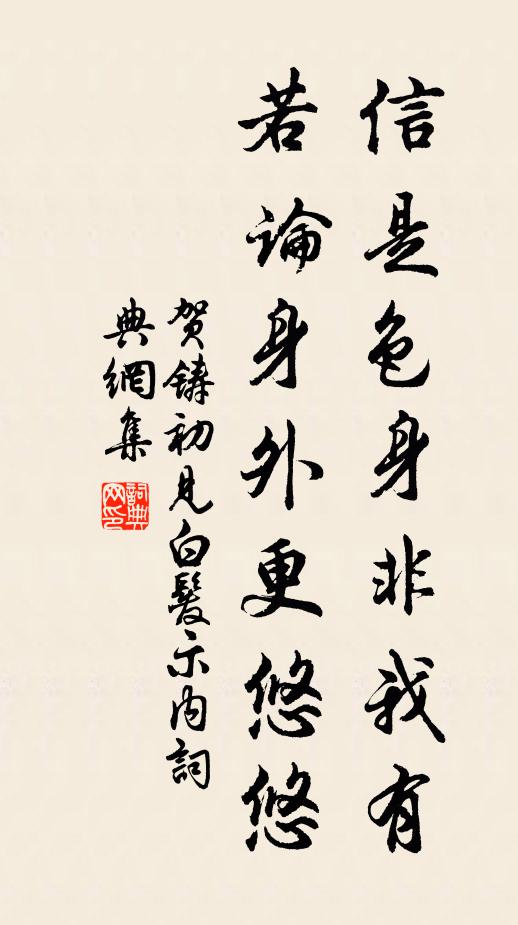 信是色身非我有
若論身外更悠悠
賀鑄初見白髮示內詞
典網集
詞典網印